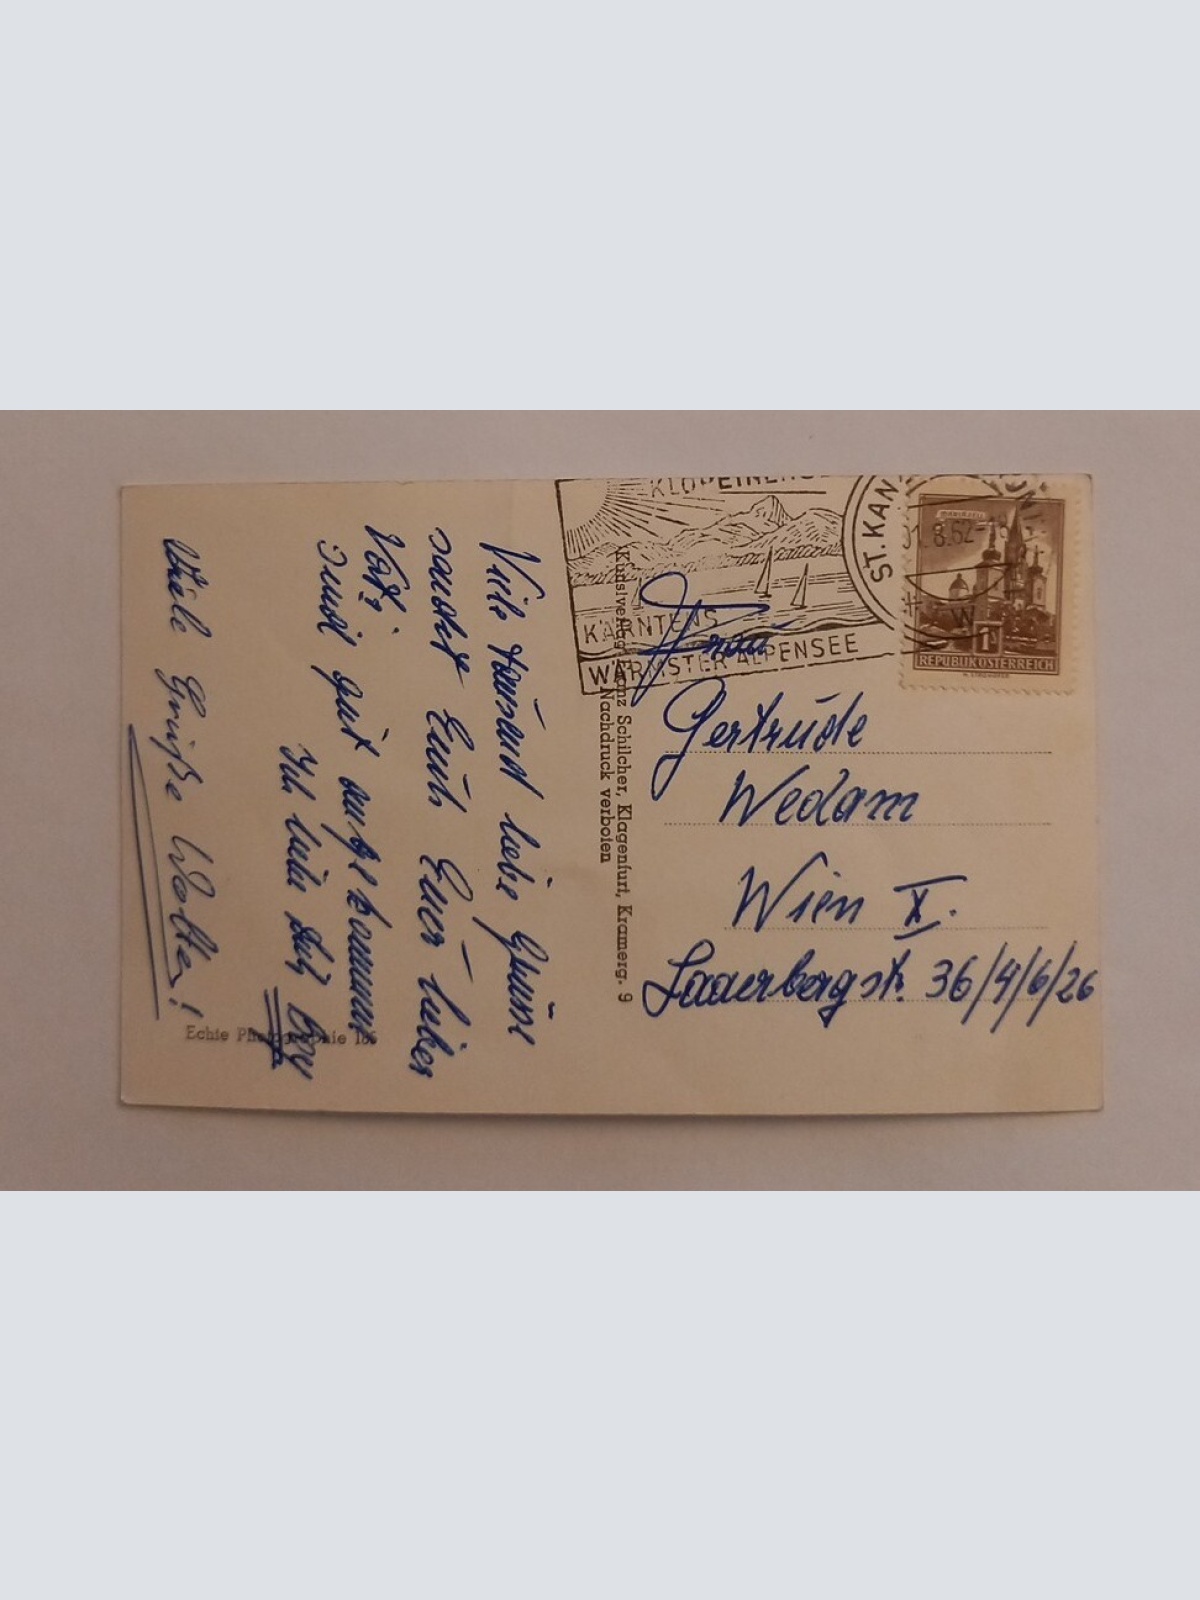 Viele tausend liebe Grüße
sendet Euch Euer lieber
Vati
gut angekommen
Ich
Viele Grüße Wolter!
Echte Photographie 186
Kunstverlag Franz Schilcher, Klagenfurt, Kramerg. 9
Nachdruck verboten
KLOPEINERSEE
KÄRNTENS
WÄRMSTER ALPENSEE
ST. KAN
8.62-18
W
MARIAZELL
1S
REPUBLIK ÖSTERREICH
Frau
Gertrude
Wedam
Wien X.
Laaerbergstr. 36/4/6/26